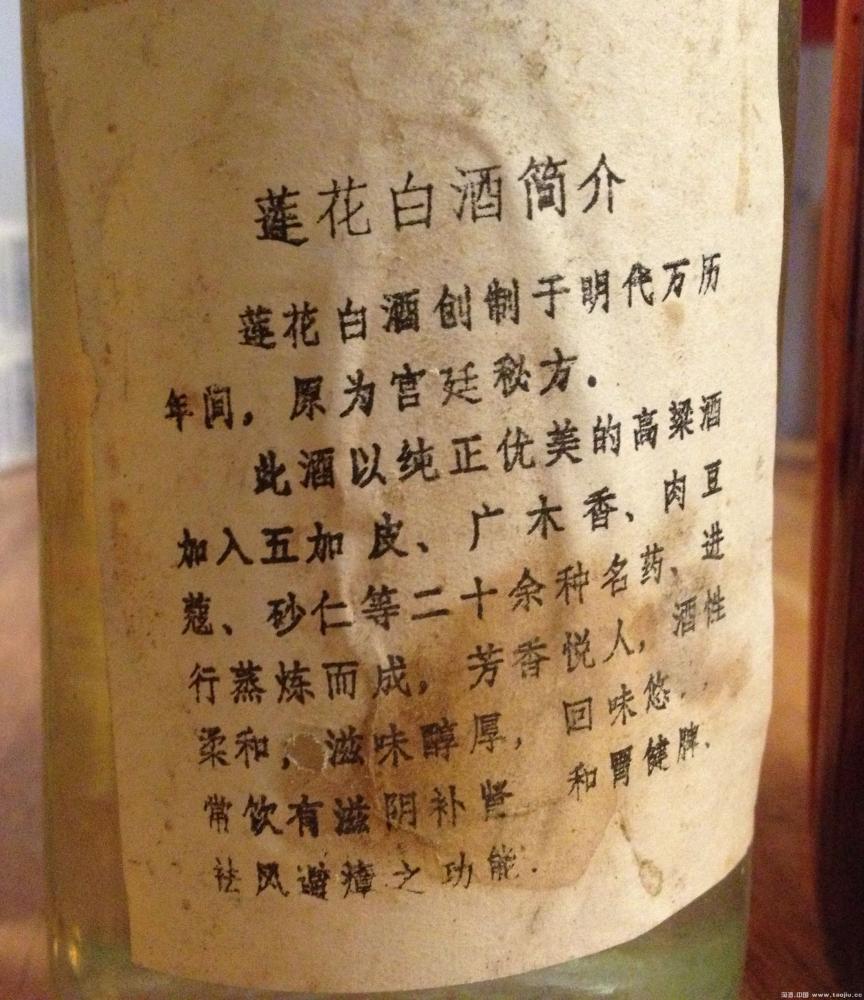 莲花白酒简介
莲花白酒创制于明代万历
年间，原为宫廷秘方．
此酒以纯正优美的高粱酒
加入五加皮、广木香、肉豆
蔻、砂仁等二十余种名药、进
行蒸炼而成，芳香悦人，酒性
柔和，滋味醇厚，回味悠
常饮有滋阴补肾 和胃健脾、
祛风避瘴之功能．
www.taojiu.cc